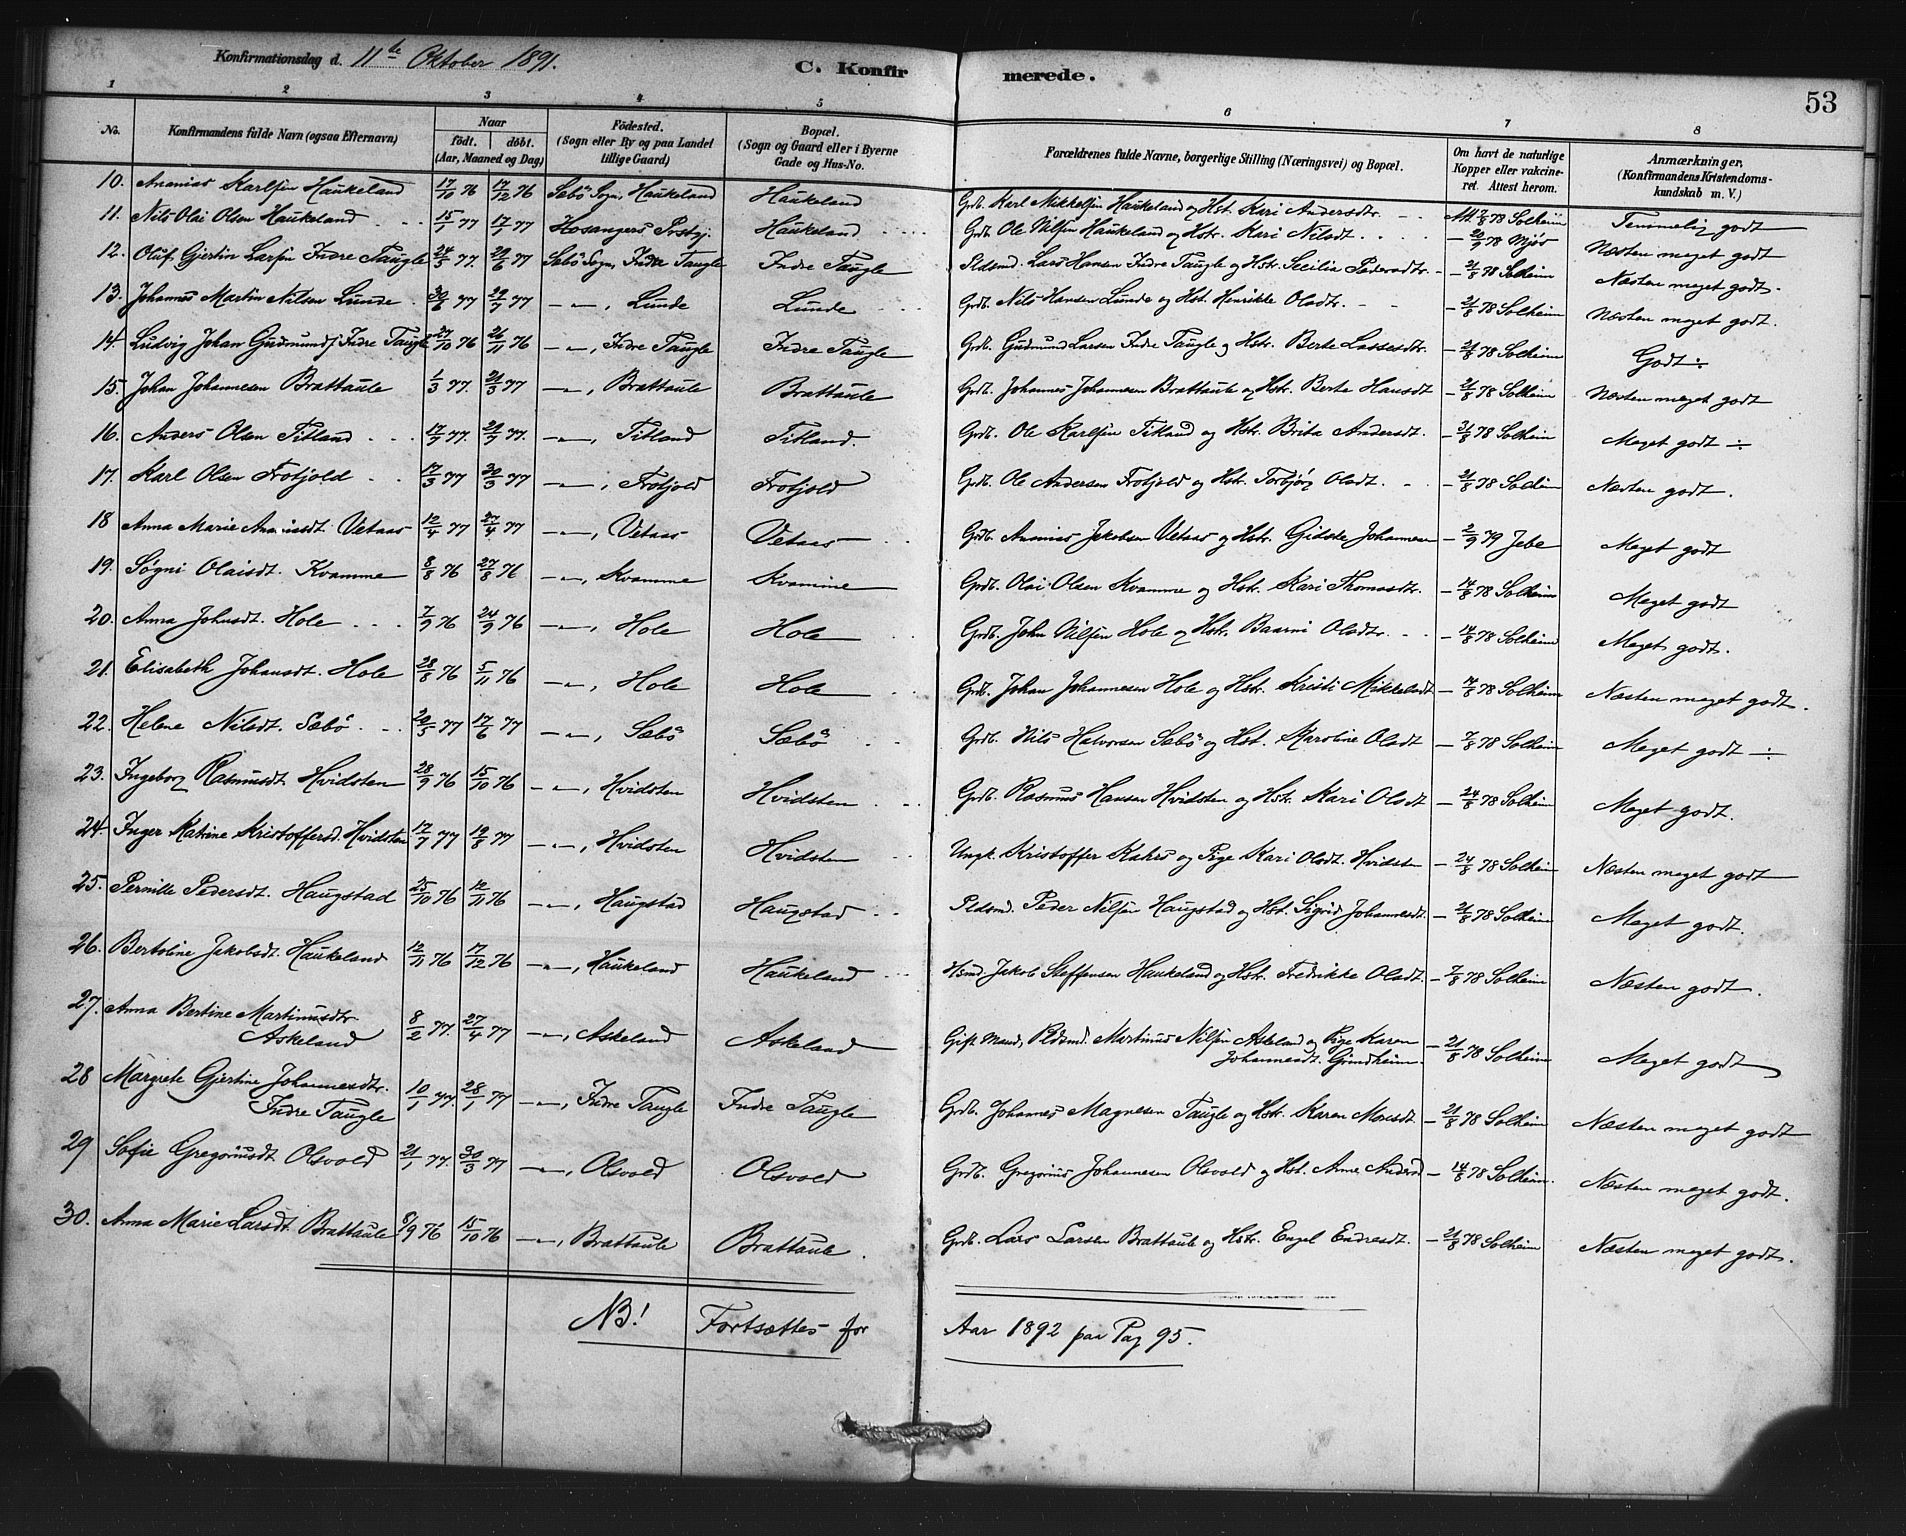 Konfirmationsdag d. 11te Oktober 1891.
C. Konfirmerede.
53
1 2 3 4 5 6 7 8
No. Konfirmandens fulde Navn (ogsaa Efternavn) Naar födt. döbt. (Aar, Maaned og Dag) Födested. (Sogn eller By og paa Landet tillige Gaard) Bopæl. (Sogn og Gaard eller i Byerne Gade og Hus-No. Forældrenes fulde Navne, borgerlige Stilling (Næringsvei) og Bopæl. Om havt de naturlige Kopper eller vakcineret. Attest herom. Anmærkninger, (Konfirmandens Kristendomskundskab m. V.)
10. Ananias Karlsen Haukeland 17/10 76 17/12 76 Sæbö Sogn, Haukeland Haukeland Grdb. Karl Mikkelsen Haukeland og Hst. Kari Andersdtr. 78 Solheim Temmelig godt
11. Nils Olai Olsen Haukeland 15/1 77 17/1 77 Hosangers Prstgj. Haukeland Grdb. Ole Nilsen Haukeland og Hstr. Kari Nilsdt. 78 Mjös Næsten meget godt
12. Oluf Gjertin Larsen Indre Taugle 24/5 77. 20/6 77 Sæbö Sogn, Indre Taugle Indre Taugle Pldsmd. Lars Hansen Indre Taugle og Hstr. Secilia Pedersdtr. - 21/8 78 Solheim Næsten meget godt.
13. Johannes Martin Nilsen Lunde 30/6 77 29/7 77 -"-, Lunde Lunde Grdb. Nils Hansen Lunde og Hst. Henrikke Olsdtr. - 21/8 78 Solheim Næsten meget godt.
14. Ludvig Johan Gudmunds. Indre Taugle 27/10 76 26/11 76 -"-, Indre Taugle Indre Taugle Grdb. Gudmund Larsen Indre Taugle og Hstr. Berte Lassesdtr. - 21/8 78 Solheim Godt ÷
15. Johan Johannesen Brattaule 1/3 77. 21/3 77 -"-, Brattaule Brattaule Grdb. Johannes Johannesen Brattaule og Hst. Berta Hansdt - 21/8 78 Solheim Næsten meget godt
16. Anders Olsen Titland 77. 77. -"-, Titland Titland Grdb. Ole Karlsen Titland og Hstr. Brita Andersdt. - 31/8 78 Solheim Meget godt ÷
17. Karl Olsen Frotjold 17/3 77 30/3 77 -"-, Frotjold Frotjold Grdb. Ole Andersen Frotjold og Hstr. Torbjörg Olsdt. - 21/8 78 Solheim Næsten godt.
18 Anna Marie Vetaas 12/4 77 27/4 77 -"-, Vetaas Vetaas Grdb. Ananias Jakobsen Vetaas og Hstr. Gidske Johannesen - 2/9 79 Jebe Meget godt
19. Sögni Olaisdt. Kvamme 8/8 76 27/8 76 -"-, Kvamme Kvamme Grdb. Olai Olsen Kvamme og Hstr. Kari Thomasdtr. - 14/8 78 Solheim Meget godt
20. Anna Johnsdt. Hole 7/9 76 24/9 76 -"-, Hole Hole Grdb. John Nilsen Hole og Hstr. Baarni Olsdtr. - 14/8 78 Solheim Meget godt.
21. Elisabeth Johansdt. Hole 28/8 76 5/11 76 -"-, Hole Hole Grdb. Johan Johannesen Hole og Hstr. Kristi Mikkelsdt - 78 Solheim Næsten meget godt.
22. Helene Nilsdt. Sæbö 20/5 77 17/6 77 -"-, Sæbö Sæbö Grdb. Nils Halvorsen Sæbö og Hst. Karoline Olsdt - 7/8 78 Solheim Meget godt ÷
23. Ingeborg Rasmusdt. Hvidsten 28/9 76 15/10 76 -"-, Hvidsten Hvidsten Grdb. Rasmus Hansen Hvidsten og Hst. Kari Olsdt - 24/8 78 Solheim Meget godt.
24. Inger Katrine Kristoffersd. Hvidsten 17/7 77 19/8 77 -"-, Hvidsten Hvidsten Ungk. Kristoffer Kahrs og Pige Kari Olsdt. Hvidsten - 24/8 78 Solheim Næsten meget godt
25. Pernille Pedersdt. Haugstad 25/10 76 12/11 76 -"-, Haugstad Haugstad Pldsmd. Peder Nilsen Haugstad og Hst. Sigrid Johannesdt. - 21/8 78 Solheim Meget godt.
26. Bertoline Jakobsdt. Haukeland 12/11 76 17/12 76 -"-, Haukeland Haukeland Hsmd. Jakob Steffensen Haukeland og Hstr. Fredrikke Olsdt. - 7/8 78 Solheim Næsten godt.
27. Anna Bertine Martinusdtr.
Askeland 8/2 77. 27/4 77 -"-, Askeland Askeland Gift Mand, Pldsmd. Martinus Nilsen Askeland og Pige Karen
Johannesdt. Grindheim. - 21/8 78 Solheim Meget godt
28 Margrete Gjertine Johannesdtr.
Indre Taugle 10/1 77. 28/1 77 -"-, Indre Taugle Indre Taugle Grdb. Johannes Magnesen Taugle og Hstr. Karen Monsdt. - 21/8 78 Solheim Næsten meget godt
29 Sofie Gregoriusdt Olsvold 21/1 77. 30/3 77 -"-, Olsvold Olsvold Grdb. Gregorius Johannesen Olsvold og Hst. Anne Andersd - 14/8 78 Solheim. Næsten meget godt.
30. Anna Marie Larsdt. Brattaule 8/9 76 15/10 76 -"-, Brattaule Brattaule. Grdb. Lars Larsen Brattaule og Hstr. Engel Endresdt. - 21/8 78 Solheim Næsten meget godt.
NB! Fortsættes for Aar 1892 paa Pag 95.